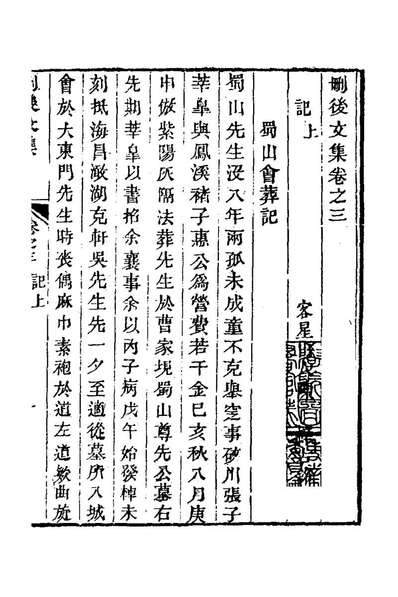 刪後文集卷之三
記上
客星
蜀山會葬記
蜀山先生沒八年兩孤未成童不克舉窆事砂川張子
莘臯與鳳溪褚子惠公爲營費若干金巳亥秋八月庚
申倣紫陽灰隔法葬先生於曹家垻蜀山尊先公墓右
先期莘臯以書招余襄事余以丙子病戊午始發棹未
刻抵海昌
湖克軒吳先生先一夕至適從墓所入城
會於大東門先生時喪偶麻巾素袍於道左道欵曲旋
卷之三 記上